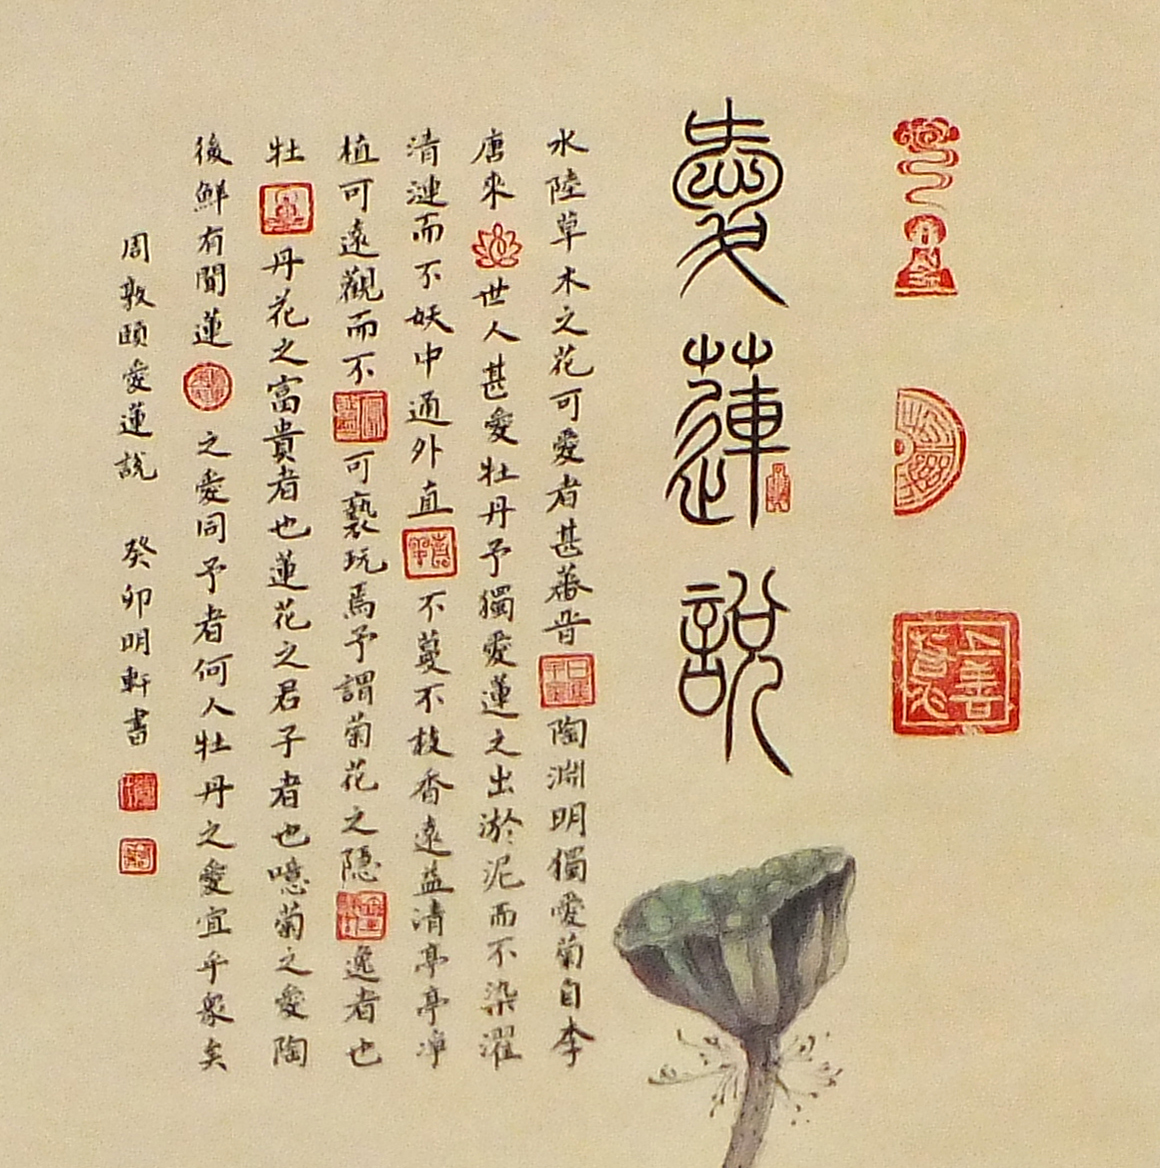 上善若水
愛蓮說
水陸草木之花可愛者甚蕃晉陶淵明獨愛菊自李
唐來世人甚愛牡丹予獨愛蓮之出淤泥而不染濯
清漣而不妖中通外直不蔓不枝香遠益清亭亭淨
植可遠觀而不可褻玩焉予謂菊花之隱逸者也
牡丹花之富貴者也蓮花之君子者也噫菊之愛陶
後鮮有聞蓮之愛同予者何人牡丹之愛宜乎衆矣
周敦頤愛蓮說 癸卯明軒書